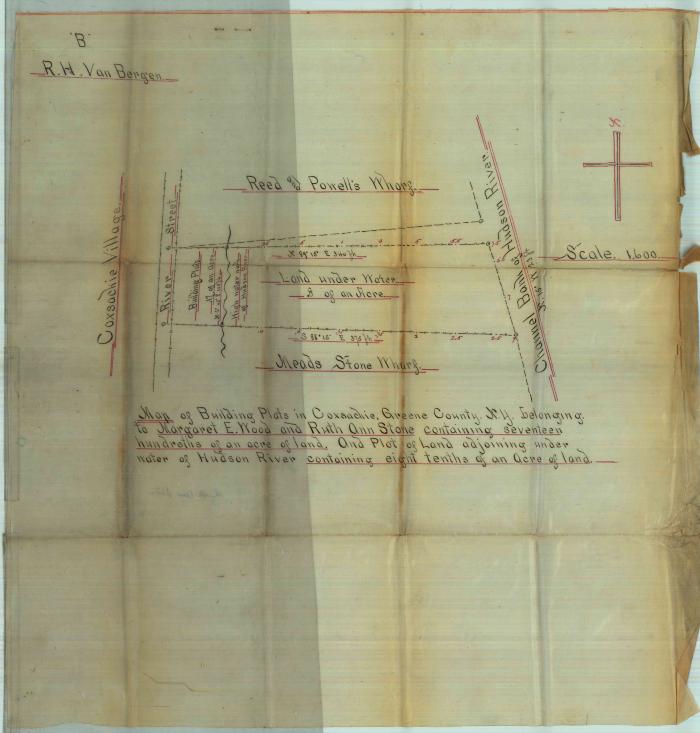 "B"
R.H. Van Bergen.
Reed & Powell's Wharf.
Coxsachie Village.
River Street
Channel Bank of Hudson River.
N.
Scale. 1.600.
Building Plots
.17 of an acre
High water mark
of Hudson River
Land under Water
.8 of an Acre.
Meads Stone Wharf.
Map of Building Plots in Coxsachie, Greene County, N.Y. belonging
to Margaret E. Wood and Ruth Ann Stone containing seventeen
hundreths of an acre of land. And Plot of Land adjoining under
water of Hudson River containing eight tenths of an Acre of land.